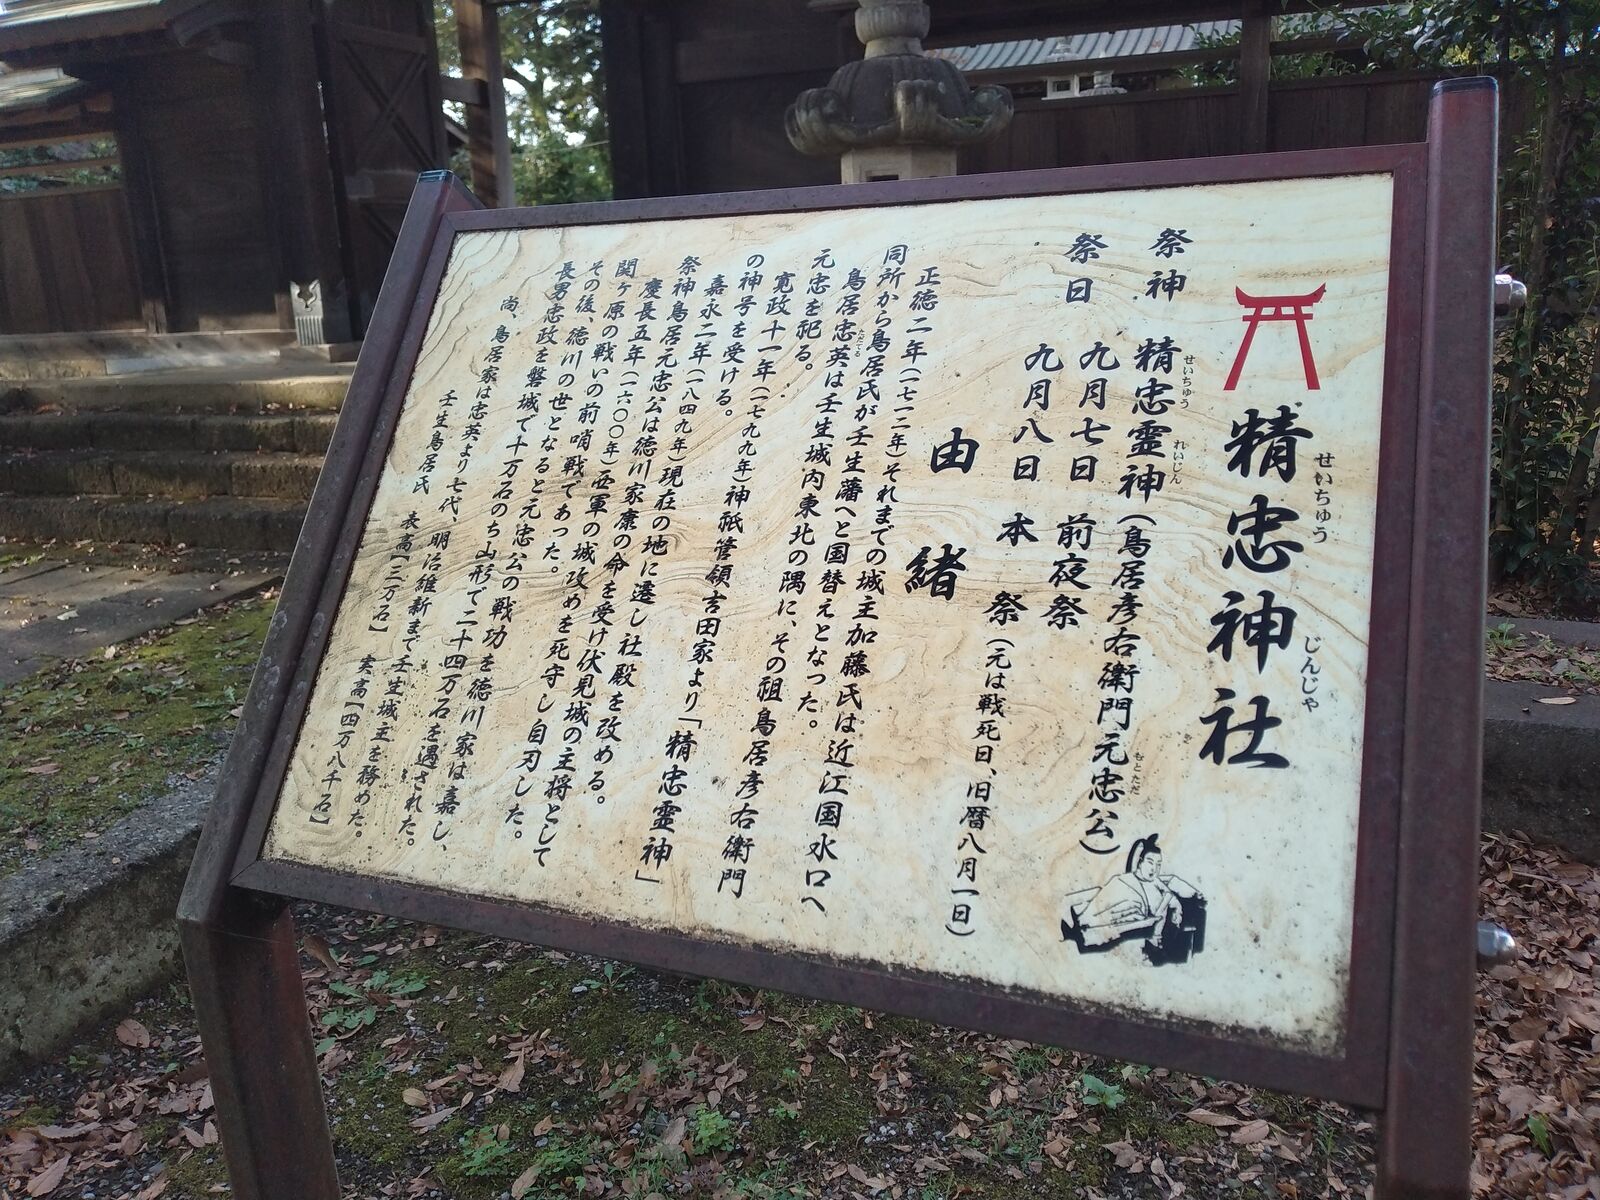 精忠神社
せいちゅう じんじゃ
祭神 精忠霊神(鳥居彦右衛門元忠公)
せいちゅう れいじん もとただ
祭日 九月七日 前夜祭
九月八日 本祭(元は戦死日、旧暦八月一日)
由緒
正徳二年(一七一二年)それまでの城主加藤氏は近江国水口へ
同所から鳥居氏が壬生藩へと国替えとなった。
鳥居忠英は壬生城内東北の隅に、その祖鳥居彦右衛門
ただてる
元忠を祀る。
寛政十一年(一七九九年)神祇管領吉田家より「精忠霊神」
の神号を受ける。
嘉永二年(一八四九年)現在の地に遷し社殿を改める。
祭神鳥居元忠公は徳川家康の命を受け伏見城の主将として
慶長五年(一六〇〇年)西軍の城攻めを死守し自刃した。
関ヶ原の戦いの前哨戦であった。
その後、徳川の世となると元忠公の戦功を徳川家は嘉し、
長男忠政を磐城で十万石のち山形で二十四万石を遇された。
尚、鳥居家は忠英より七代、明治維新まで壬生城主を務めた。
壬生鳥居氏 表高【三万石】 実高【四万八千石】